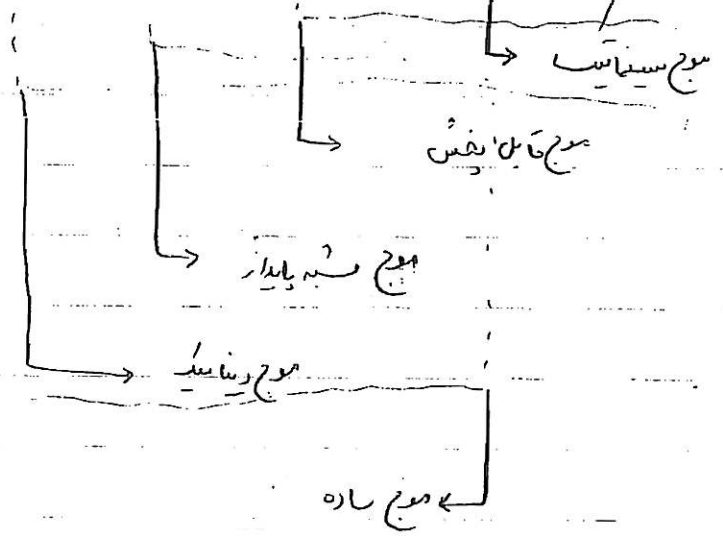 موج سینماتیک
موج قابل پخش
موج شبه پایدار
موج دینامیک
موج ساده